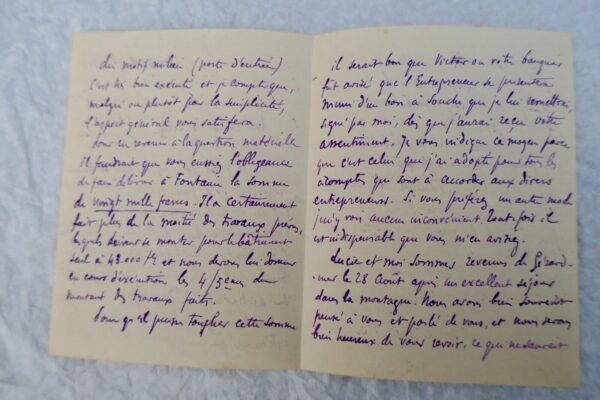 du motif milieu (porte d'entrée)
C'est très bien exécuté et je compte que,
malgré ou plutôt par la simplicité,
l'aspect général vous satisfera.
Pour en revenir à la question matérielle
il faudrait que vous eussiez l'obligeance
de faire délivrer à Fontaine la somme
de vingt mille francs. Il a certainement
fait plus de la moitié des travaux prévus,
lesquels doivent se monter pour le bâtiment
seul à 43.000 frs et nous devons lui donner
en cours d'exécution les 4/5èmes du
montant des travaux faits.
Pour qu'il puisse toucher cette somme
il serait bon que Victor ou votre banquier
fût avisé que l'Entrepreneur se présentera
muni d'un bon à souche, que je lui remettrai,
signé par moi, dès que j'aurai reçu votre
assentiment. Je vous indique ce moyen parce
que c'est celui que j'ai adopté pour tous les
acomptes qui sont à accorder aux divers
entrepreneurs. Si vous préférez un autre mode
je n'y vois aucun inconvénient. Toutefois il
est indispensable que vous m'en avisiez.
Lucie et moi sommes revenus de Gérard-
mer le 28 Août après un excellent séjour
dans la montagne. Nous avons bien souvent
pensé à vous et parlé de vous, et nous serons
bien heureux de vous revoir, ce qui ne saurait